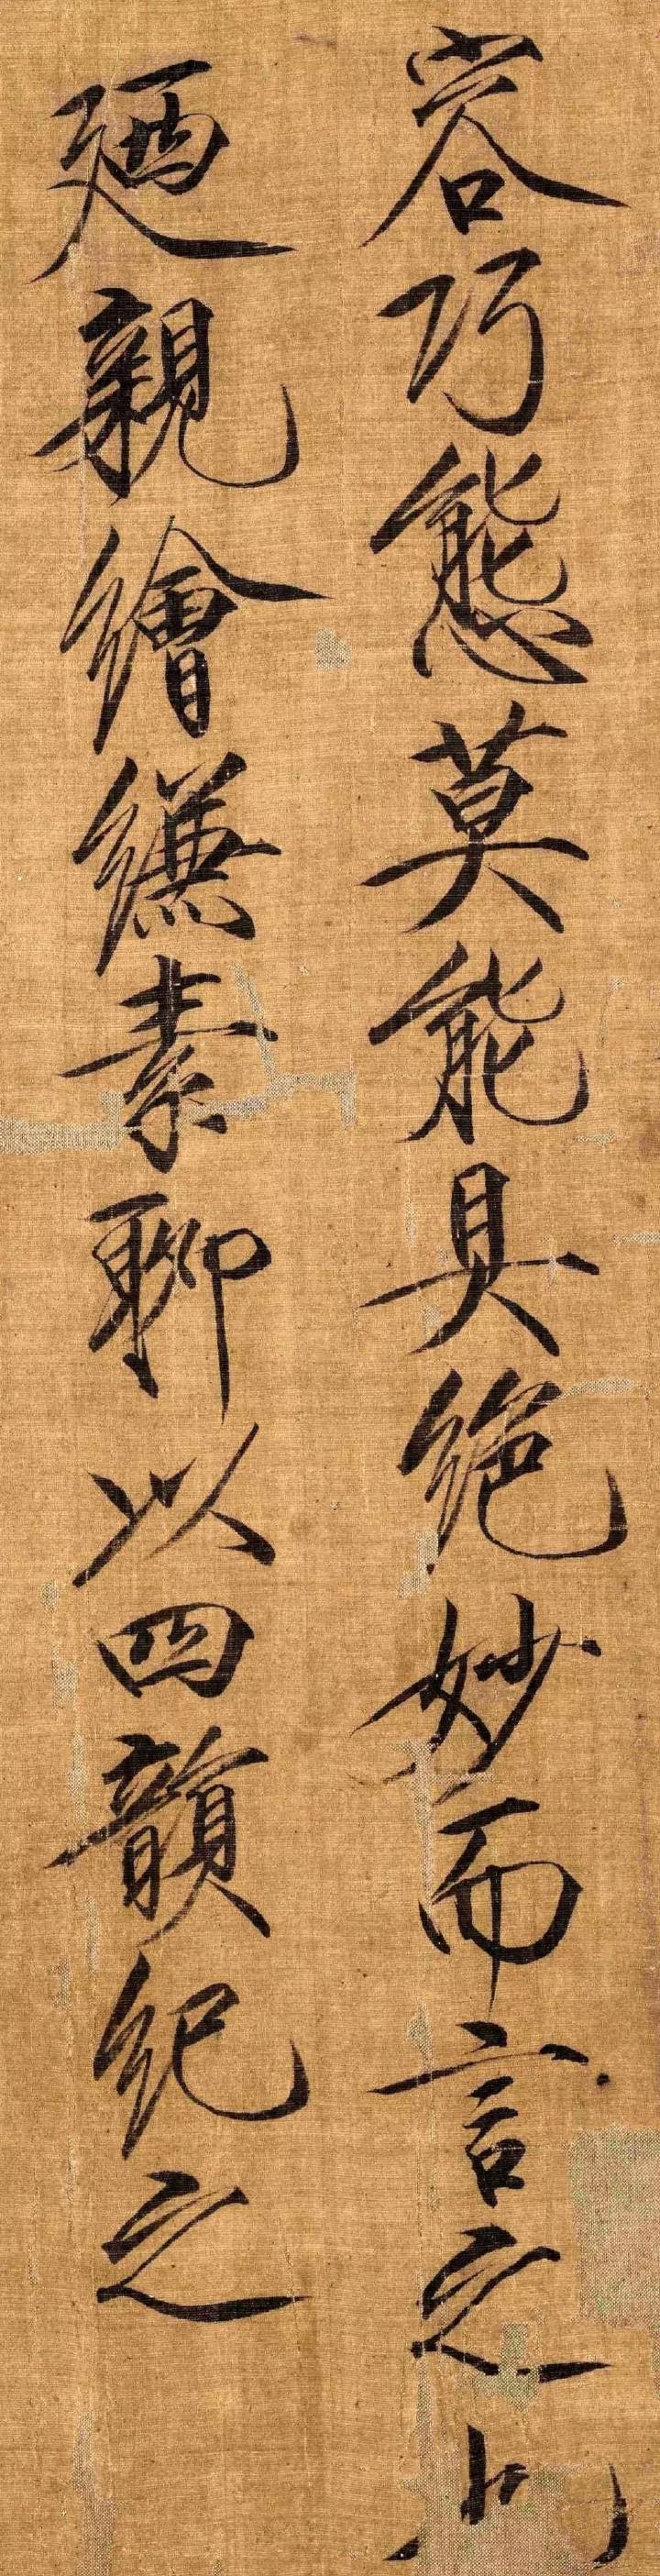 容巧態莫能具絕妙而言之也
廼親繪縑素聊以四韻紀之